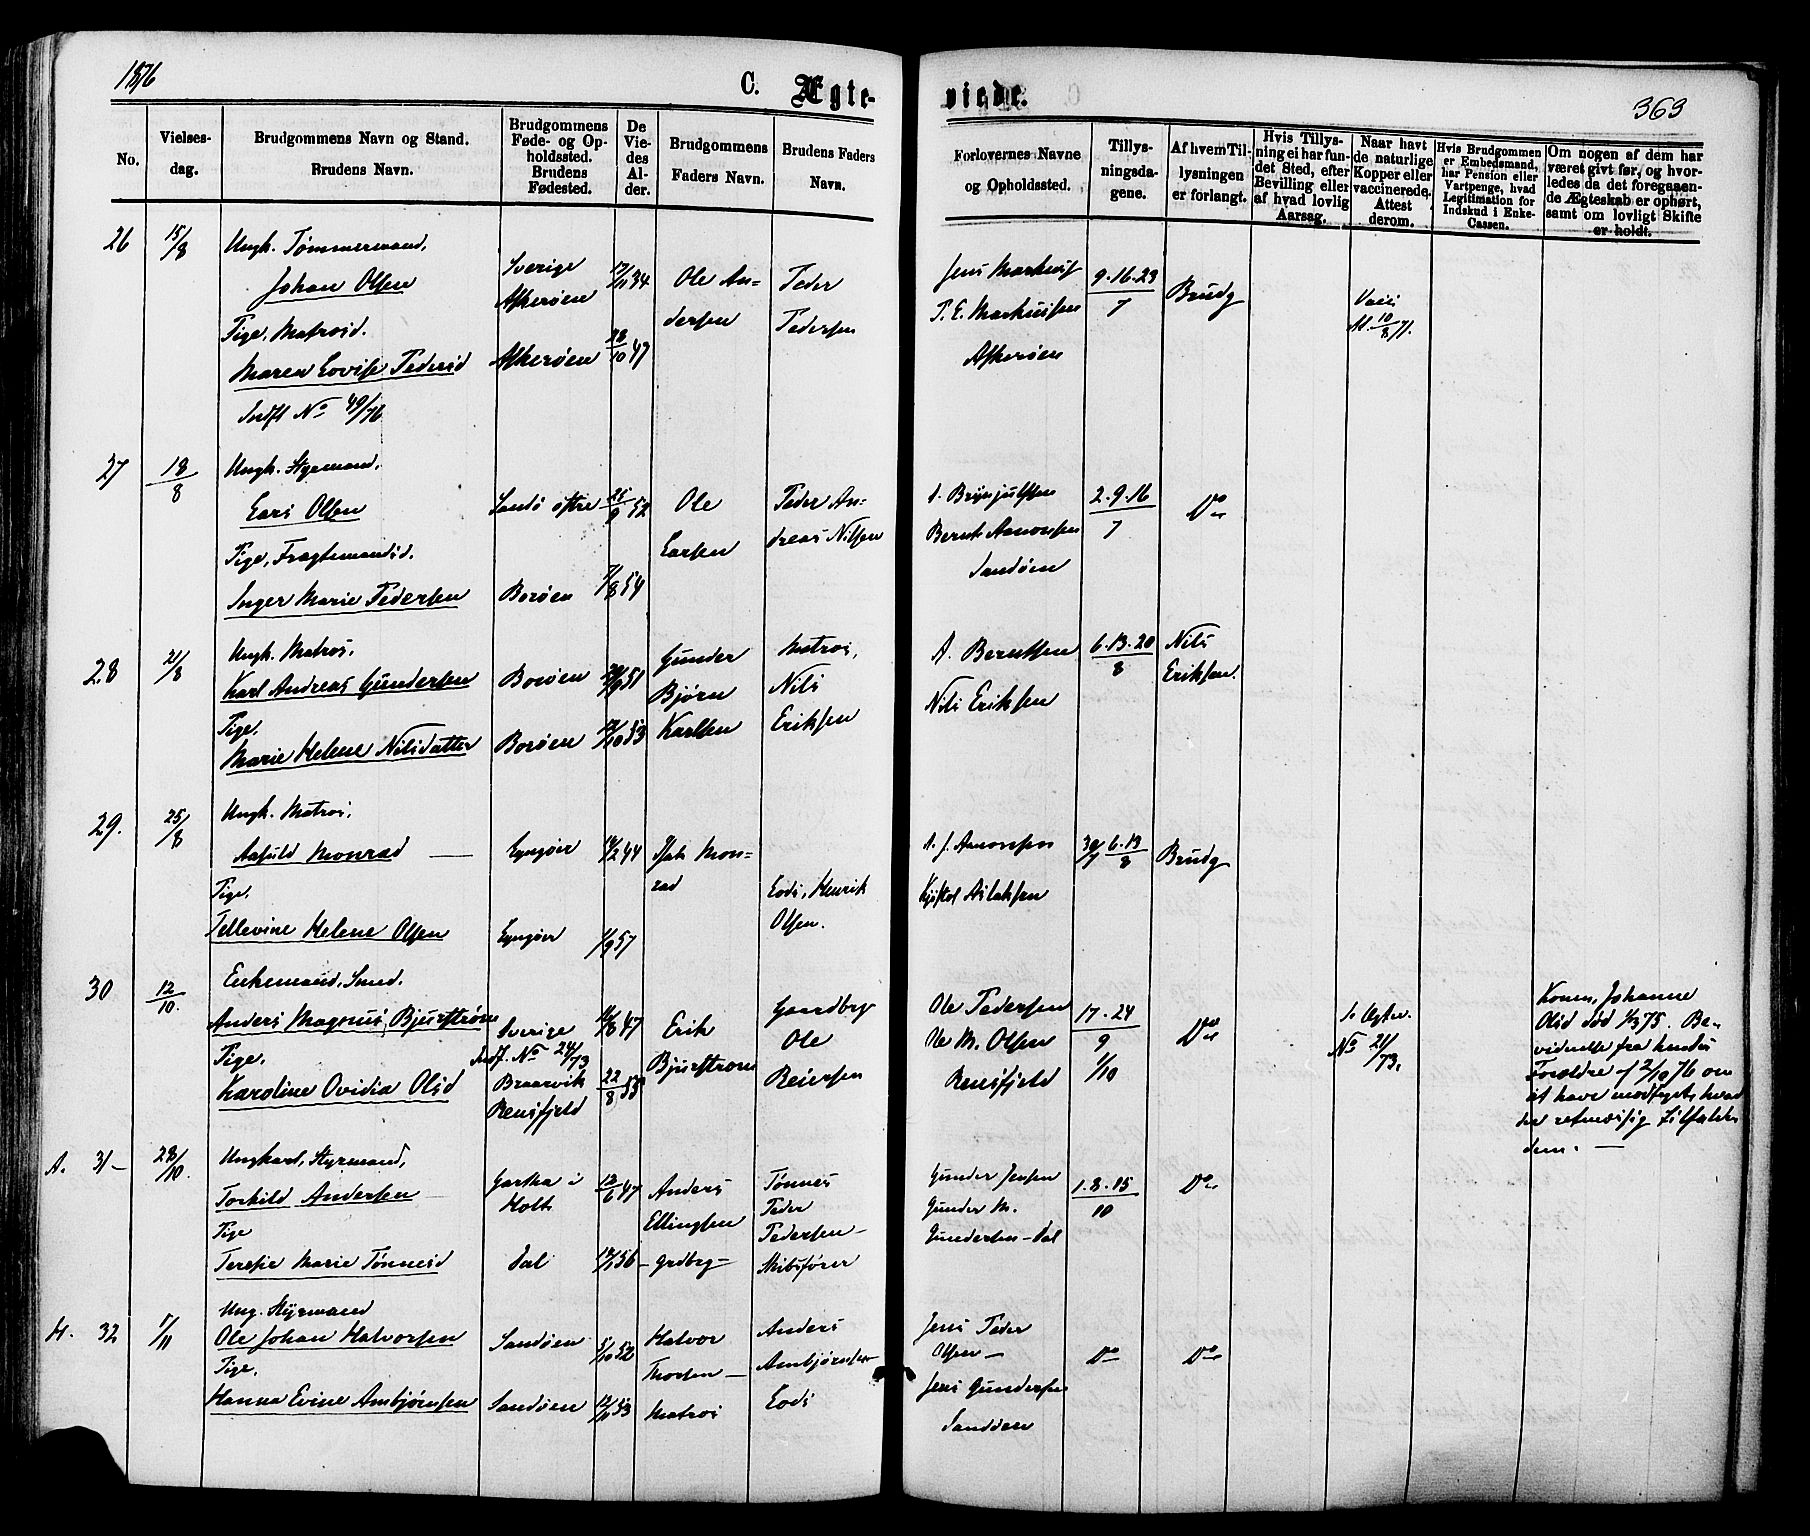 1876
C. Ægte-
viede.
363
No.
Vielses-
dag.
Brudgommens Navn og Stand.
Brudens Navn.
Brudgommens
Føde- og Op-
holdssted.
Brudens
Fødested.
De
Vie-
des
Al-
der.
Brudgommens
Faders Navn.
Brudens Faders
Navn.
Forlovernes Navne
og Opholdssted.
Tillys-
ningsda-
gene.
Af hvem Til-
lysningen
er forlangt.
Hvis Tillys-
ning ei har fun-
det Sted, efter
Bevilling eller
af hvad lovlig
Aarsag.
Naar havt
de naturlige
Kopper eller
vaccinerede.
Attest
derom.
Hvis Brudgommen
er Embedsmand,
har Pension eller
Vartpenge, hvad
Legitimation for
Indskud i Enke-
Cassen.
Om nogen af dem har
været givt før, og hvor-
ledes da det foregaaen-
de Ægteskab er ophørt,
samt om lovligt Skifte
er holdt.
26
15/8
Ungk. Tømmermand,
Johan Olsen
Pige, Matrosd.
Maren Lovise Pedersd
Indft No 49/76
Sverige
Askerøen
Askerøen
17/11 34
28/10 47
Ole An-
dersen
Peder
Pedersen
Jens Markus
P. E. Markussen
Askerøen
9.16.23
7
Brudg
Vacc
At. 10/8 71.
27
18/8
Ungk. Styrmand,
Lars Olsen
Pige, Fragtemandsd.
Inger Marie Pedersen
Sandø østre
Borøen
25/9 52
7/8 54
Ole
Larsen
Peder An-
dreas Nilsen
A. Brynjulfsen
Bernt Aanonsen
Sandøen
2.9.16
7
Do
28
21/8
Ungk. Matros,
Karl Andreas Gundersen
Pige,
Marie Helene Nilsdatter
Borøen
Borøen
Gunder
Bjørn
Karlsen
Matros,
Nils
Eriksen
A. Berntsen
Nils Eriksen
6.13.20
8
Nils
Eriksen.
29.
25/8
Ungk. Matros,
Aasuld Monrad
Pige,
Tellevine Helene Olsen
Lyngør
Lyngør
14/2 44
1/9 57
Isak Mon-
rad
Lods, Henrik
Olsen.
A. J. Aanonsen
Kristol Aslaksen
30/7 6.13
8
Brudg
30
12/10.
Enkemand, Smed.
Anders Magnus Bjurstrøm
Pige,
Karoline Ovidia Olsd
Sverige
Indf. No 24/73
Braarvik
Rensfjeld
16/8 47
22/8 53
Erik
Bjurstrøm
Gaardbrg
Ole
Reiersen
Ole Pedersen
Ole M. Olsen
Rensfjeld
17.24
9
1/10
Do
No 21/73.
Konen, Johanne
Olsd død 1/3 75. Be-
vidnelse fra hendes
Forældre af 2/10 76 om
at have modtaget, hvad
der retmæssig tilfalder
dem.
A. 31
28/10.
Ungkarl, Styrmand,
Torkild Andersen
Pige
Teresie Marie Tønnesd
Gartha i
Holt
Dal
12/6 47
Anders
Ellingsen
grdbrg
Tønnes
Peder
Pedersen
Skibsfører
Gunder Jensen
Gunder M.
Gundersen-Dal
1.8.15
10
Do
H. 32
7/11
Ung. Styrmand
Ole Johan Halvorsen
Pige,
Hanna Evine Ambjørnsen
Sandøen
Sandøen
5/10 52
12/11 53
Halvor
Thorsen
Matros
Anders
Ambjørnsen
Lods
Jens Peder
Olsen
Jens Gundersen
Sandøen
Do
Do